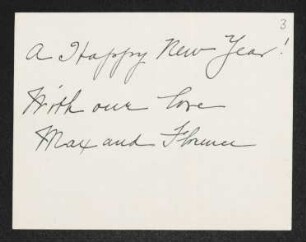 3
A Happy New Year!
With our love
Max and Florence